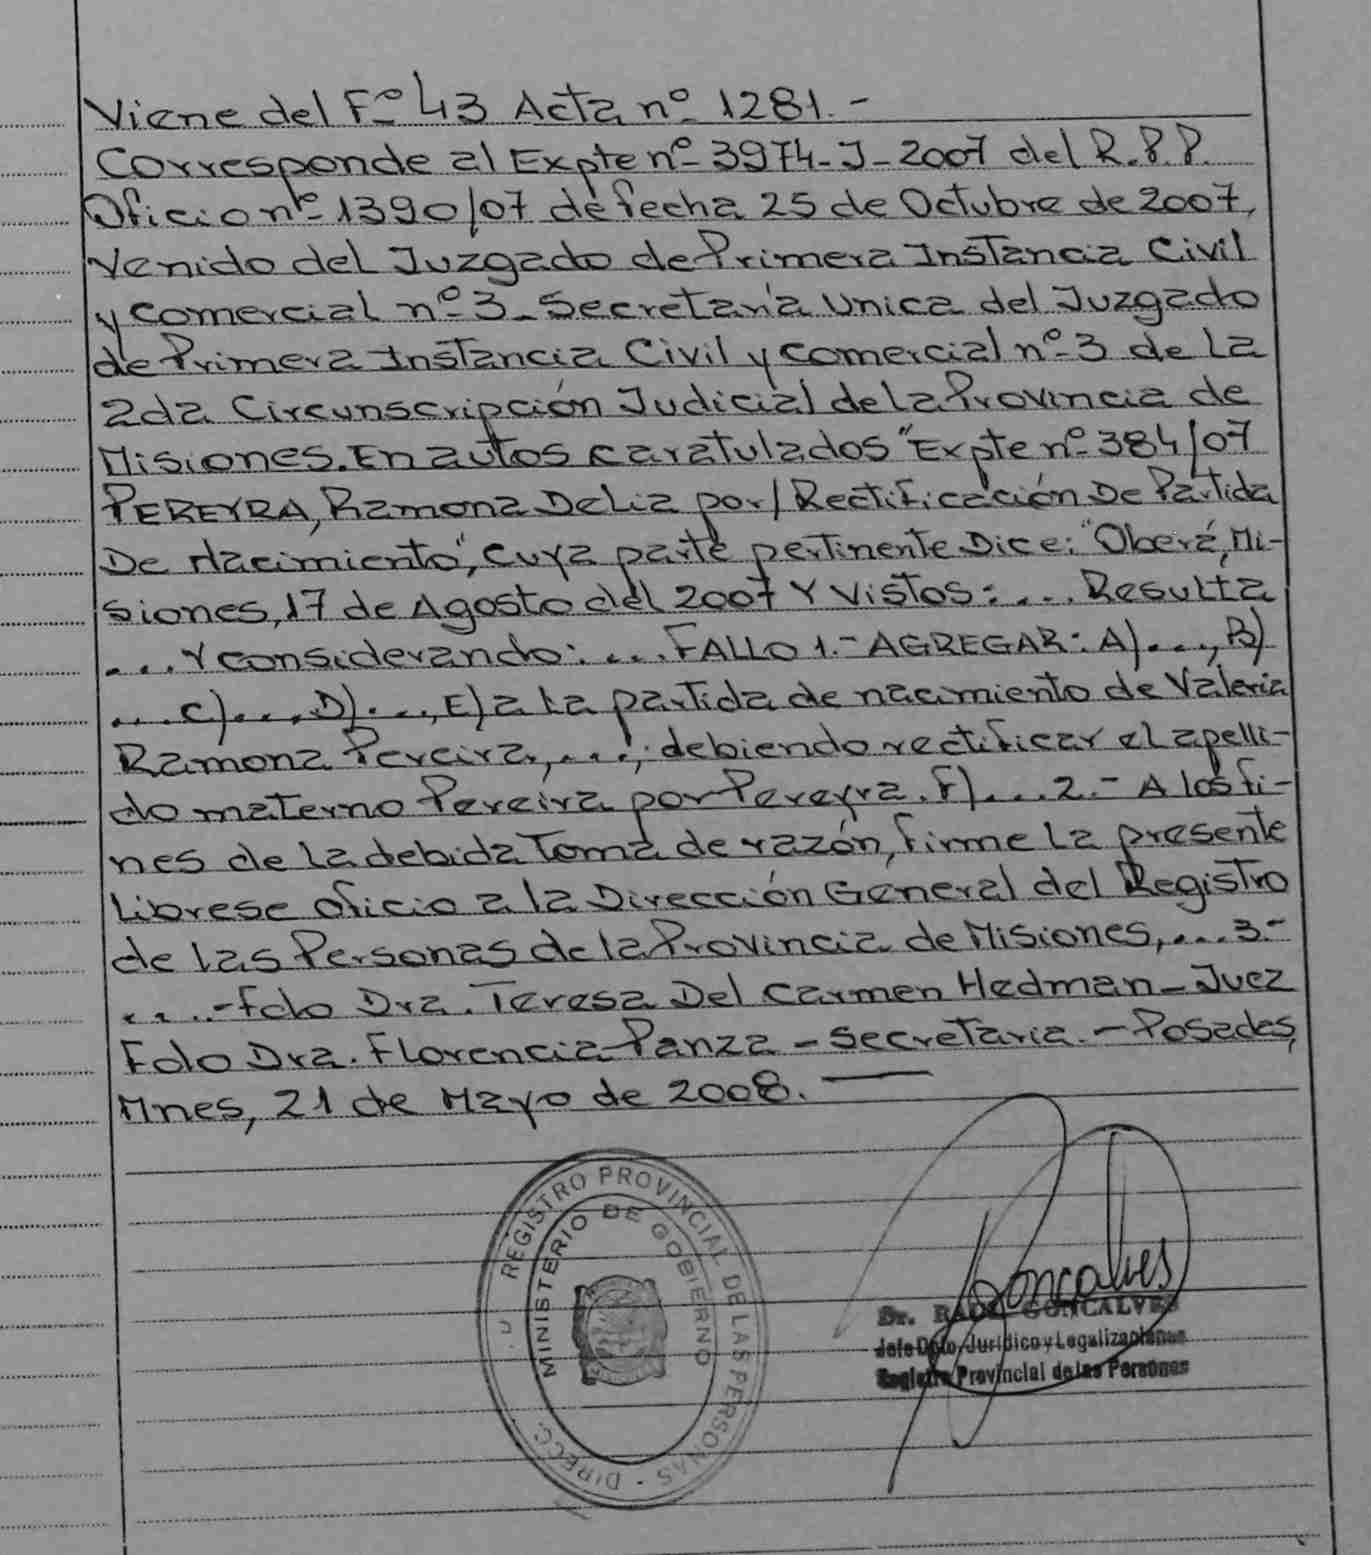 Viene del Fº 43 Acta nº 1281.-
Corresponde al Expte nº 3974-J-2007 del R.P.P.
Oficio nº 1390/07 de fecha 25 de Octubre de 2007,
Venido del Juzgado de Primera Instancia Civil
y Comercial nº 3 - Secretaría Unica del Juzgado
de Primera Instancia Civil y Comercial nº 3 de La
2da Circunscripción Judicial de la Provincia de
Misiones. En autos caratulados "Expte nº 384/07
PEREYRA, Ramona Delia por/ Rectificación De Partida
De Nacimiento", cuya parte pertinente Dice: "Oberá, Mi-
siones, 17 de Agosto del 2007 Y Vistos: ... Resulta
... Y considerando: ... FALLO 1.- AGREGAR: A) ..., B)
... C) ... D) ..., E) a La partida de nacimiento de Valeria
Ramona Pereira, ...; debiendo rectificar el apelli-
do materno Pereira por Pereyra. F) ... 2.- A los fi-
nes de la debida Toma de razón, firme La presente
Librese oficio a la Dirección General del Registro
de las Personas de la Provincia de Misiones, ... 3.-
... .-fdo Dra. Teresa Del Carmen Hedman - Juez
Fdo Dra. Florencia Panza - Secretaria. - Posadas,
Mnes, 21 de Mayo de 2008.
REGISTRO PROVINCIAL DE LAS PERSONAS - DIRECC.
MINISTERIO DE GOBIERNO
Goncalves
Dr. RAUL GONCALVES
Jefe Dpto. Jurídico y Legalizaciones
Registro Provincial de las Personas